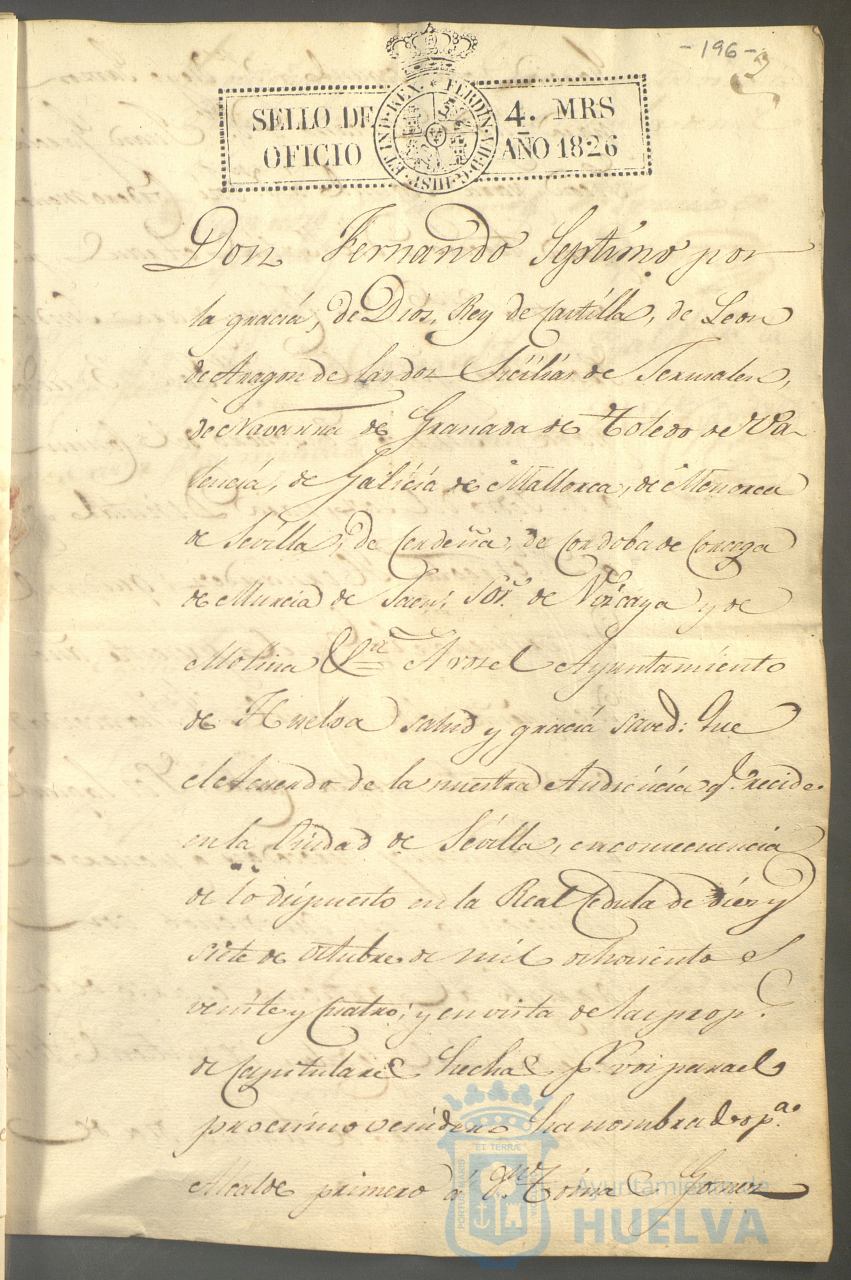 - 196 -
SELLO DE OFICIO
FERDIN. VII. D. G. HISP. ET IND. REX
4. MRS
AÑO 1826
Don Fernando Septimo por
la gracia, de Dios, Rey de Castilla, de Leon
de Aragon de las dos Sicilias de Jerusalen,
de Navarra de Granada de Toledo de Va-
lencia, de Galicia de Mallorca, de Menorca
de Sevilla, de Cerdeña, de Cordoba de Corcega
de Murcia de Jaen; Sor. de Vizcaya y de
Molina &ra A vos el Ayuntamiento
de Huelva salud y gracia saved: Que
el Acuerdo de la nuestra Audiencia q.e recide
en la Ciudad de Sevilla, en consecuencia
de lo dispuesto en la Real Cedula de diez y
siete de octubre de mil ochociento s
veinte y Cuatro; y en vista de las prop.s
de Capitulares hecha s p.r vos para el
procsimo venidero ha nombrado p.a
Alcalde primero á D.n Tomas Gomez
ET TERRÆ
Ayuntamiento de
HUELVA